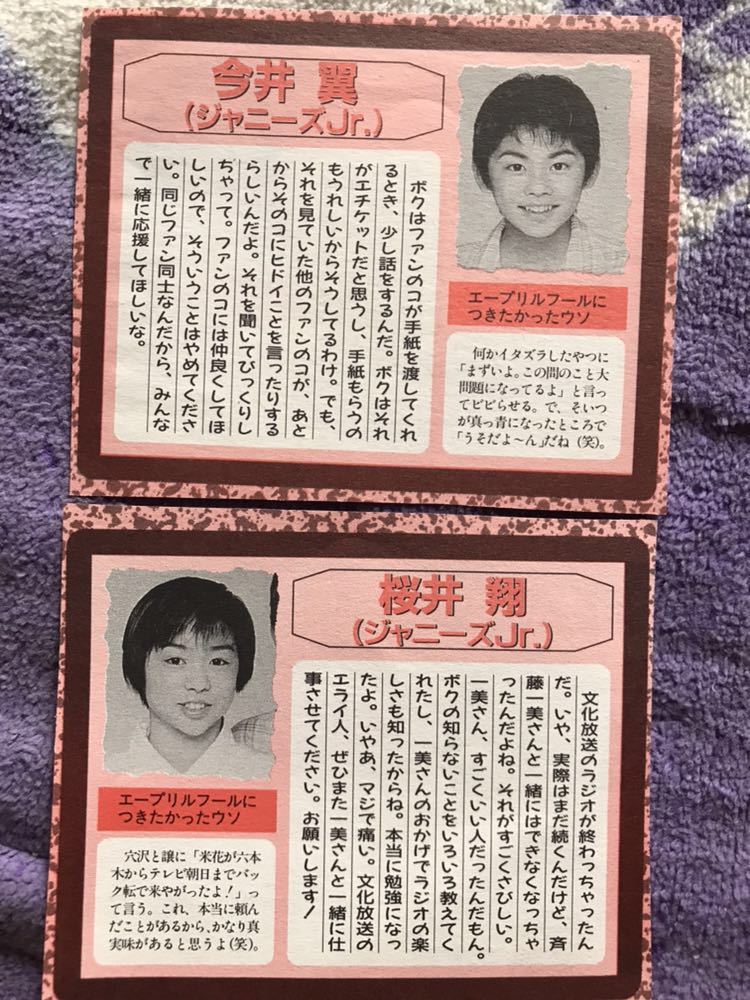 今井 翼
(ジャニーズJr.)
ボクはファンのコが手紙を渡してくれ
るとき、少し話をするんだ。ボクはそれ
がエチケットだと思うし、手紙もらうの
もうれしいからそうしてるわけ。でも、
それを見ていた他のファンのコが、あと
からそのコにヒドイことを言ったりする
らしいんだよ。それを聞いてびっくりし
ちゃって。ファンのコには仲良くしてほ
しいので、そういうことはやめてくださ
い。同じファン同士なんだから、みんな
で一緒に応援してほしいな。
エープリルフールに
つきたかったウソ
何かイタズラしたやつに
「まずいよ。この間のこと大
問題になってるよ」と言っ
てビビらせる。で、そいつ
が真っ青になったところで
「うそだよ〜ん」だね(笑)。
桜井 翔
(ジャニーズJr.)
文化放送のラジオが終わっちゃったん
だ。いや、実際はまだ続くんだけど、斉
藤一美さんと一緒にはできなくなっちゃ
ったんだよね。それがすごくさびしい。
一美さん、すごくいい人だったんだもん。
ボクの知らないことをいろいろ教えてく
れたし、一美さんのおかげでラジオの楽
しさも知ったからね。本当に勉強になっ
たよ。いやあ、マジで痛い。文化放送の
エライ人、ぜひまた一美さんと一緒に仕
事させてください。お願いします!
エープリルフールに
つきたかったウソ
穴沢と譲に「米花が六本
木からテレビ朝日までバッ
ク転で来やがったよ!」っ
て言う。これ、本当に頼ん
だことがあるから、かなり真
実味があると思うよ(笑)。